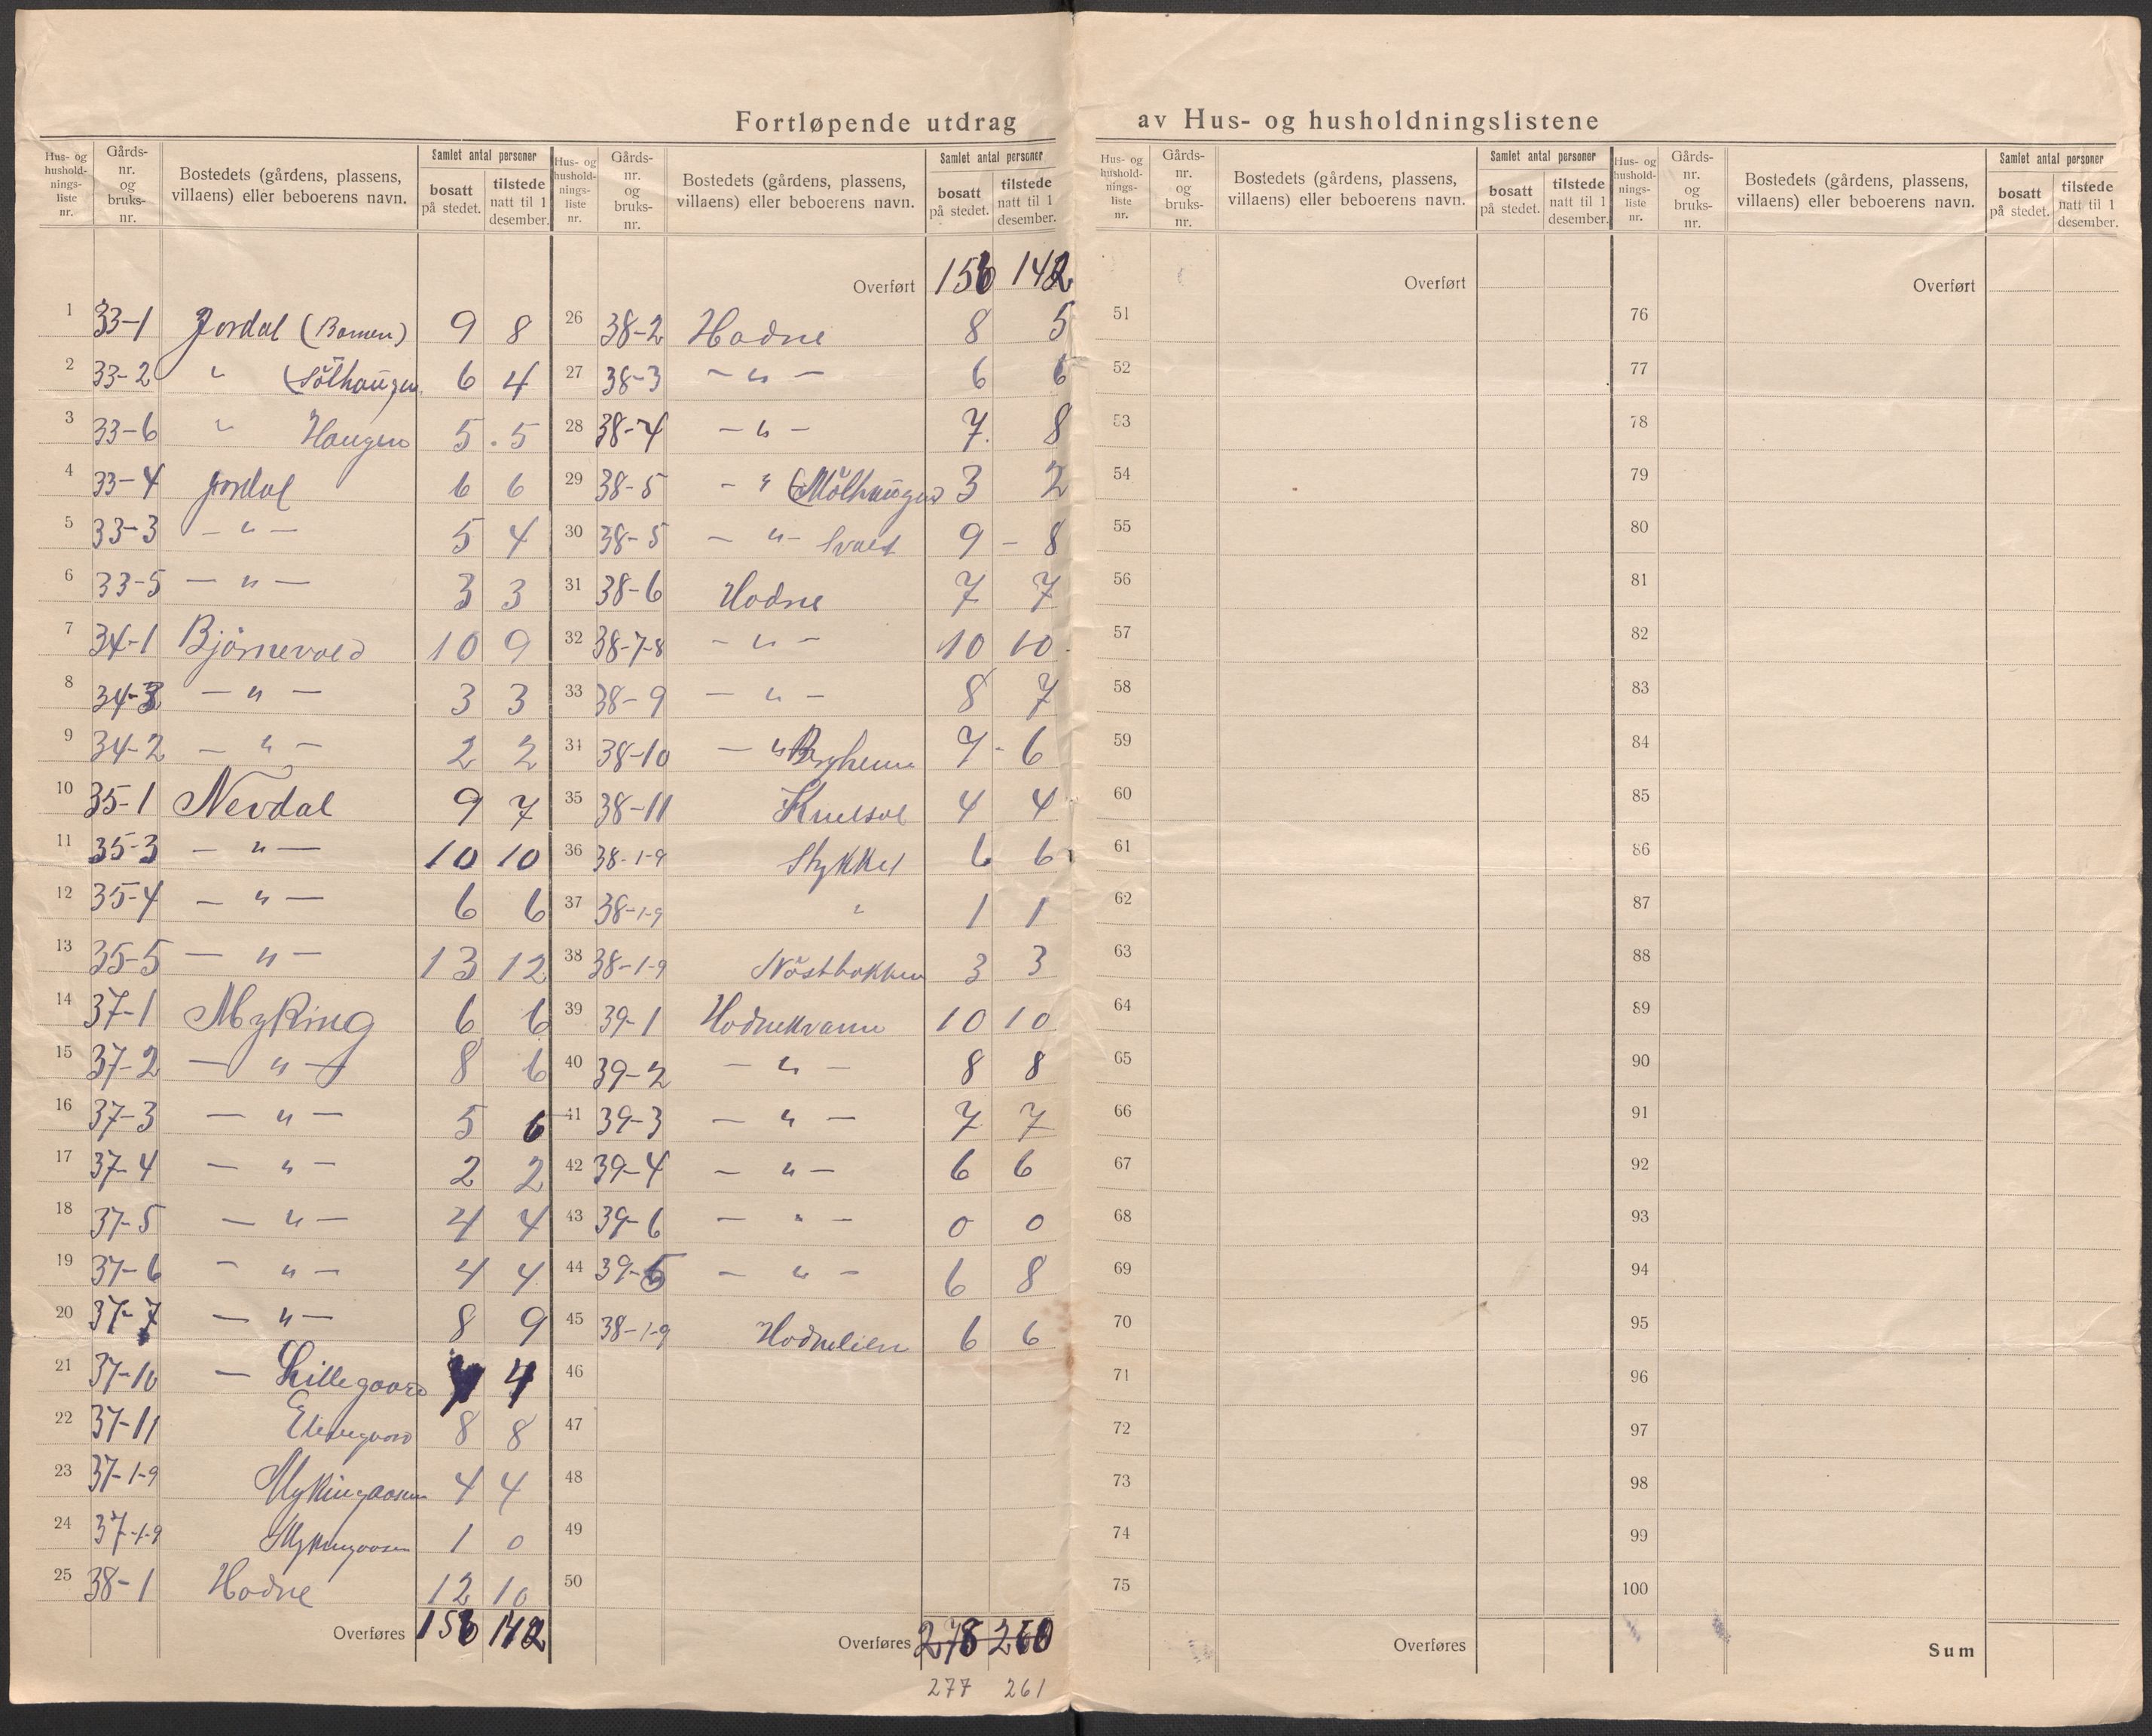 Fortløpende utdrag av Hus- og husholdningslistene
Hus- og hushold-nings-liste nr. | Gårds-nr. og bruks-nr. | Bostedets (gårdens, plassens, villaens) eller beboerens navn. | Samlet antal personer | bosatt på stedet. | tilstede natt til 1 desember.
1 33-1 Jordal (Bamen) 9 8
2 33-2 " (Sölhaugen 6 4
3 33-6 " Haugen 5 . 5
4 33-4 Jordal 6 6
5 33-3 — " — 5 4
6 33-5 — " — 3 3
7 34-1 Bjørnevold 10 9
8 34-3 — " — 3 3
9 34-2 — " — 2 2
10 35-1 Nevdal 9 7
11 35-3 — " — 10 10
12 35-4 — " — 6 6
13 35-5 — " — 13 12
14 37-1 Myking 6 6
15 37-2 — " — 8 6
16 37-3 — " — 5 6
17 37-4 — " — 2 2
18 37-5 — " — 4 4
19 37-6 — " — 4 4
20 37-7 — " — 8 9
21 37-10 — Lillegaard 4 4
22 37-11 8 8
23 37-1-9 Mykingaasen 4 4
24 37-1-9 Mykingaasen 1 0
25 38-1 Hodne 12 10
Overføres 156 142
Hus- og hushold-nings-liste nr. | Gårds-nr. og bruks-nr. | Bostedets (gårdens, plassens, villaens) eller beboerens navn. | Samlet antal personer | bosatt på stedet. | tilstede natt til 1 desember.
Overført 156 142
26 38-2 Hodne 8 5
27 38-3 — " — 6 6
28 38-4 — " — 7. 8
29 38-5 — " (Mölhaugen 3 2
30 38-5 — " — 9 — 8
31 38-6 Hodne 7 7
32 38-7-8 — " — 10 10
33 38-9 — " — 8 7
34 38-10 — " Bergheim 7 - 6
35 38-11 4 4
36 38-1-9 Stykket 6 6
37 38-1-9 " 1 1
38 38-1-9 Nöstbakken 3 3
39 39-1 Hodnekvam 10 10
40 39-2 — " — 8 8
41 39-3 — " — 7 7
42 39-4 — " — 6 6
43 39-6 — " — 0 0
44 39-5 — " — 6 8
45 38-1-9 Hodnelien 6 6
46
47
48
49
50
Overføres 278 260
277 261
Hus- og hushold-nings-liste nr. | Gårds-nr. og bruks-nr. | Bostedets (gårdens, plassens, villaens) eller beboerens navn. | Samlet antal personer | bosatt på stedet. | tilstede natt til 1 desember.
Overført
51
52
53
54
55
56
57
58
59
60
61
62
63
64
65
66
67
68
69
70
71
72
73
74
75
Overføres
Hus- og hushold-nings-liste nr. | Gårds-nr. og bruks-nr. | Bostedets (gårdens, plassens, villaens) eller beboerens navn. | Samlet antal personer | bosatt på stedet. | tilstede natt til 1 desember.
Overført
76
77
78
79
80
81
82
83
84
85
86
87
88
89
90
91
92
93
94
95
96
97
98
99
100
Sum